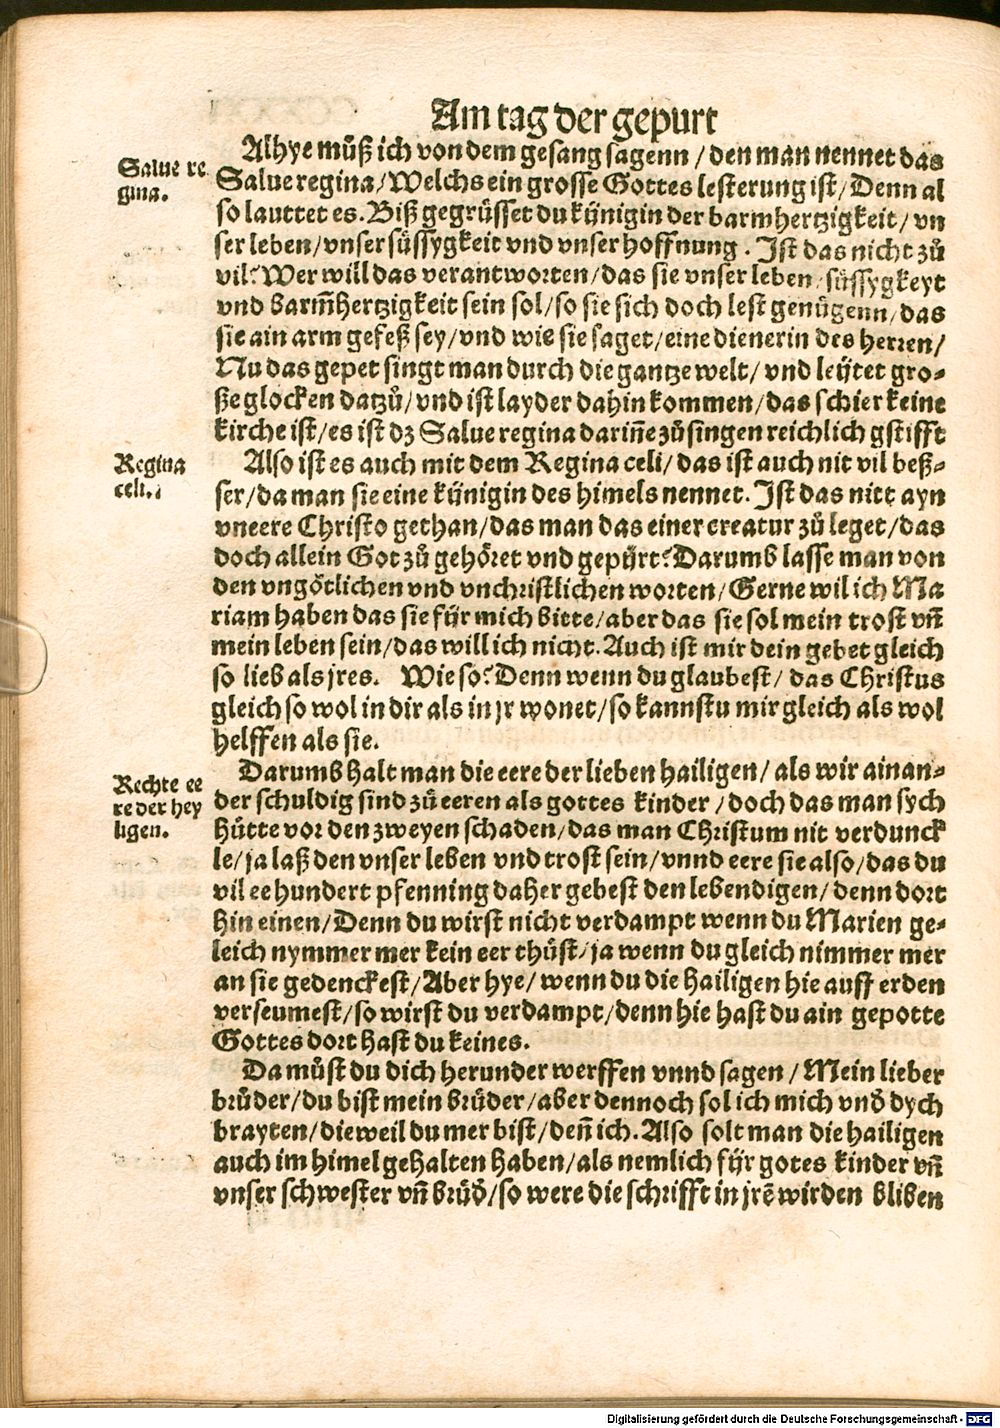 Am tag der gepurt
Alhye můß ich von dem gesang sagenn / den man nennet das
Salue re
gina.
Salue regina / Welchs ein grosse Gottes lesterung ist / Denn al
so lauttet es. Biß gegrüsset du künigin der barmhertzigkeit / vn
ser leben / vnser süssygkeit vnd vnser hoffnung. Ist das nicht zů
vil? Wer will das verantworten / das sie vnser leben / süssygkeyt
vnd barm̄hertzigkeit sein sol / so sie sich doch lest genügenn / das
sie ain arm gefeß sey / vnd wie sie saget / eine dienerin des herren /
Nu das gepet singt man durch die gantze welt / vnd leytet gro⸗
ße glocken datzů / vnd ist layder dahin kommen / das schier keine
kirche ist / es ist dz Salue regina dariñe zů singen reichlich gstifft
Regina
celi.
Also ist es auch mit dem Regina celi / das ist auch nit vil beß⸗
ser / da man sie eine künigin des himels nennet. Ist das nitt ayn
vneere Christo gethan / das man das einer creatur zů leget / das
doch allein Got zů gehöret vnd gepürt? Darumb lasse man von
den vngötlichen vnd vnchristlichen worten / Gerne wil ich Ma
riam haben das sie für mich bitte / aber das sie sol mein trost vñ
mein leben sein / das will ich nicht. Auch ist mir dein gebet gleich
so lieb als jres. Wie so? Denn wenn du glaubest / das Christus
gleich so wol in dir als in jr wonet / so kannstu mir gleich als wol
helffen als sie.
Rechte ee
re der hey
ligen.
Darumb halt man die eere der lieben hailigen / als wir ainan⸗
der schuldig sind zů eeren als gottes kinder / doch das man sych
hütte vor den zweyen schaden / das man Christum nit verdunck
le / ja laß den vnser leben vnd trost sein / vnnd eere sie also / das du
vil ee hundert pfenning daher gebest den lebendigen / denn dort
hin einen / Denn du wirst nicht verdampt wenn du Marien ge⸗
leich nymmer mer kein eer thůst / ja wenn du gleich nimmer mer
an sie gedenckest / Aber hye / wenn du die hailigen hie auff erden
verseumest / so wirst du verdampt / denn hie hast du ain gepotte
Gottes dort hast du keines.
Da můst du dich herunder werffen vnnd sagen / Mein lieber
brůder / du bist mein brůder / aber dennoch sol ich mich vnd̃ dych
brayten / die weil du mer bist / deñ ich. Also solt man die hailigen
auch im himel gehalten haben / als nemlich für gotes kinder vñ
vnser schwester vñ brůd̃ / so were die schrifft in jrẽ wirden bliben
Digitalisierung gefördert durch die Deutsche Forschungsgemeinschaft - DFG